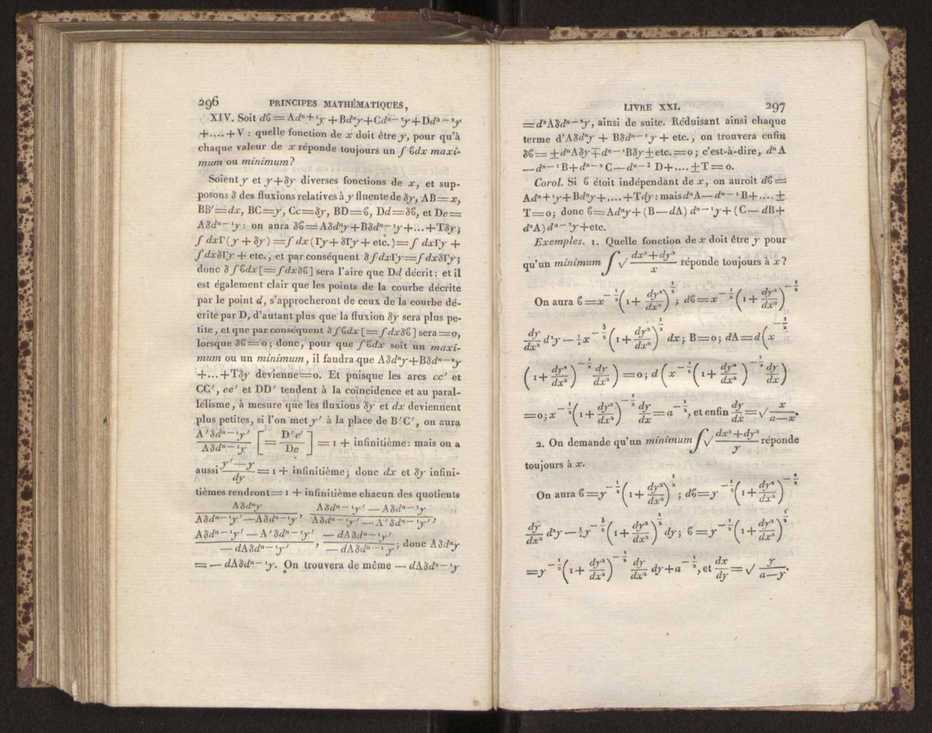 296 PRINCIPES MATHÉMATIQUES,
XIV. Soit dϐ = Adⁿ⁺¹y + Bdⁿy + Cdⁿ⁻¹y + Ddⁿ⁻²y
+....+V : quelle fonction de x doit être y, pour qu'à
chaque valeur de x réponde toujours un ∫ϐdx maxi-
mum ou minimum?
Soient y et y+δy diverses fonctions de x, et sup-
posons δ des fluxions relatives à y fluente de δy, AB=x,
BB'=dx, BC=y, Cc=δy, BD=ϐ, Dd=δϐ, et De=
Aδdⁿ⁻¹y : on aura δϐ=Aδdⁿy+Bδdⁿ⁻¹y+...+Tδy;
∫dxΓ(y+δy)=∫dx(Γy+δΓy+etc.)=∫dxΓy+
∫dxδΓy+etc., et par conséquent δ∫dxΓy=∫dxδΓy;
donc δ∫ϐdx[=∫dxδϐ] sera l'aire que Dd décrit: et il
est également clair que les points de la courbe décrite
par le point d, s'approcheront de ceux de la courbe dé-
crite par D, d'autant plus que la fluxion δy sera plus pe-
tite, et que par conséquent δ∫ϐdx[=∫dxδϐ] sera=0,
lorsque δϐ=0; donc, pour que ∫ϐdx soit un maxi-
mum ou un minimum, il faudra que Aδdⁿy+Bδdⁿ⁻¹y
+...+Tδy devienne=0. Et puisque les arcs cc' et
CC', ee' et DD' tendent à la coïncidence et au paral-
lélisme, à mesure que les fluxions δy et dx deviennent
plus petites, si l'on met y' à la place de B'C', on aura
A'δdⁿ⁻¹y'/Aδdⁿ⁻¹y [= D'e'/De] = 1 + infinitième: mais on a
aussi (y'—y)/dy = 1 + infinitième; donc dx et δy infini-
tièmes rendront=1 + infinitième chacun des quotients
Aδdⁿy/(Aδdⁿ⁻¹y'—Aδdⁿ⁻¹y), (Aδdⁿ⁻¹y'—Aδdⁿ⁻¹y)/(Aδdⁿ⁻¹y'—A'δdⁿ⁻¹y'),
(Aδdⁿ⁻¹y'—A'δdⁿ⁻¹y')/(—dAδdⁿ⁻¹y'), (—dAδdⁿ⁻¹y')/(—dAδdⁿ⁻¹y); donc Aδdⁿy
=—dAδdⁿ⁻¹y. On trouvera de même —dAδdⁿ⁻¹y
LIVRE XXI. 297
=d²Aδdⁿ⁻²y, ainsi de suite. Réduisant ainsi chaque
terme d'Aδdⁿy + Bδdⁿ⁻¹y + etc., on trouvera enfin
δϐ=±dⁿAδy∓dⁿ⁻¹Bδy±etc.=0; c'est-à-dire, dⁿA
—dⁿ⁻¹B+dⁿ⁻²C—dⁿ⁻³D+....±T=0.
Corol. Si ϐ étoit indépendant de x, on auroit dϐ=
Adⁿ⁺¹y+Bdⁿy+....+Tdy: mais dⁿA—dⁿ⁻¹B+....±
T=0; donc ϐ=Adⁿy+(B—dA)dⁿ⁻¹y+(C—dB+
d²A)dⁿ⁻²y+etc.
Exemples. 1. Quelle fonction de x doit être y pour
qu'un minimum ∫√((dx²+dy²)/x) réponde toujours à x?
On aura ϐ=x^(-1/2)(1+dy²/dx²)^(1/2); dϐ=x^(-1/2)(1+dy²/dx²)^(-1/2)
dy/dx² d²y—½x^(-3/2)(1+dy²/dx²)^(1/2) dx; B=0; dA=d(x^(-1/2)
(1+dy²/dx²)^(-1/2) dy/dx²)=0; d(x^(-1/2)(1+dy²/dx²)^(-1/2) dy/dx)
=0; x^(-1/2)(1+dy²/dx²)^(-1/2) dy/dx=a^(-1/2), et enfin dy/dx=√(x/(a—x)).
2. On demande qu'un minimum ∫√((dx²+dy²)/y) réponde
toujours à x.
On aura ϐ=y^(-1/2)(1+dy²/dx²)^(1/2); dϐ=y^(-1/2)(1+dy²/dx²)^(-1/2)
dy/dx² d²y—½y^(-3/2)(1+dy²/dx²)^(1/2) dy; ϐ=y^(-1/2)(1+dy²/dx²)^(1/2)
=y^(-1/2)(1+dy²/dx²)^(-1/2) dy/dx² dy+a^(-1/2), et dx/dy=√(y/(a—y)).